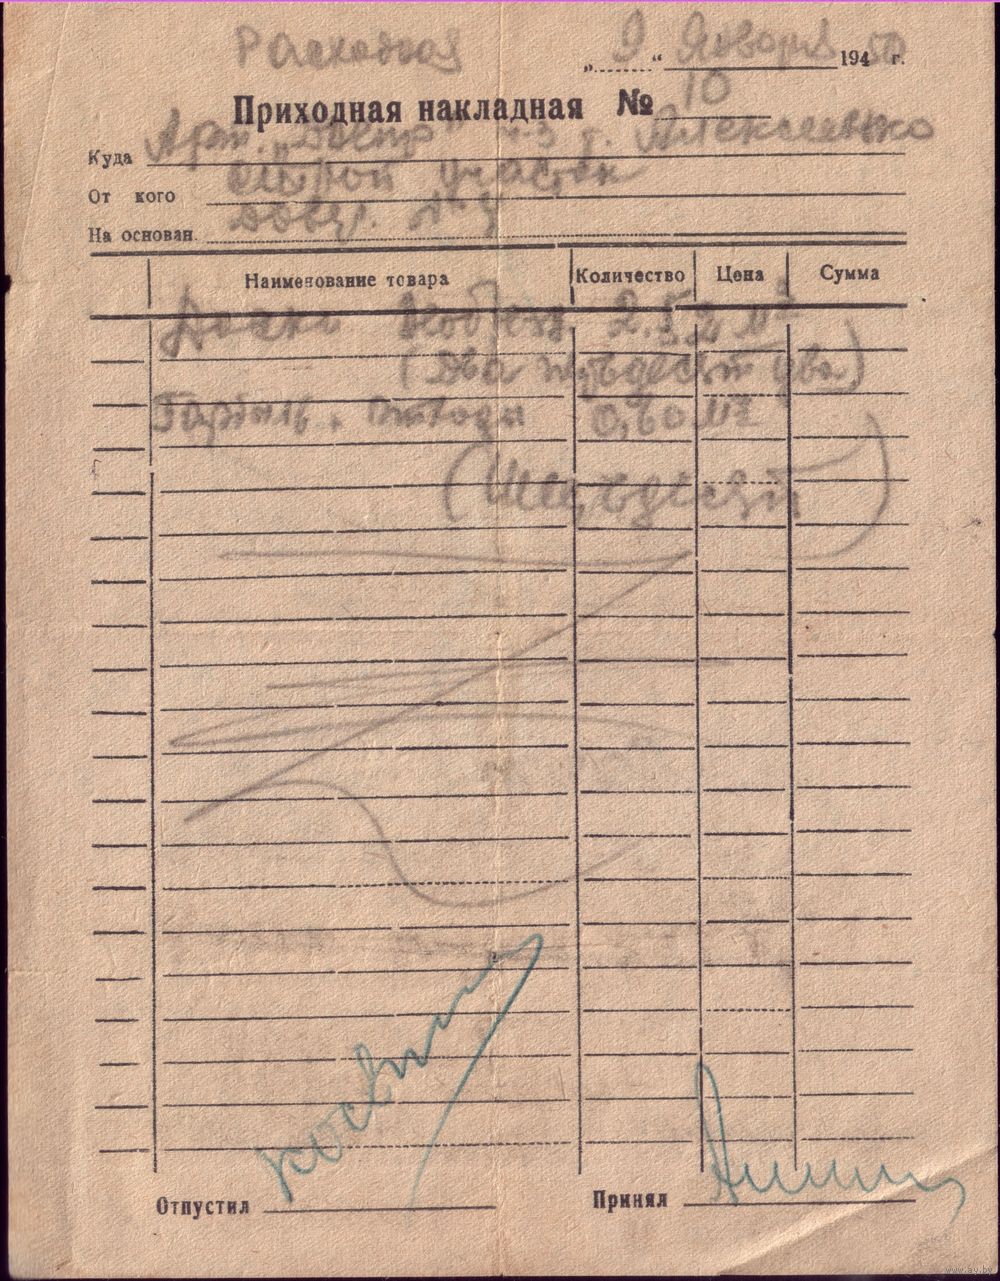 Расходная „ 9 “ Января 1950 г.
Приходная накладная № 10
Куда Арт. „Днепр“ ч-з т. Алексеенко
От кого участок
На основан. довер. № 9
Наименование товара Количество Цена Сумма
Доски необрез. 2.52 м³
(два пятьдесят два)
0,60 м³
(Шестьдесят)
Отпустил Принял
www.ay.by